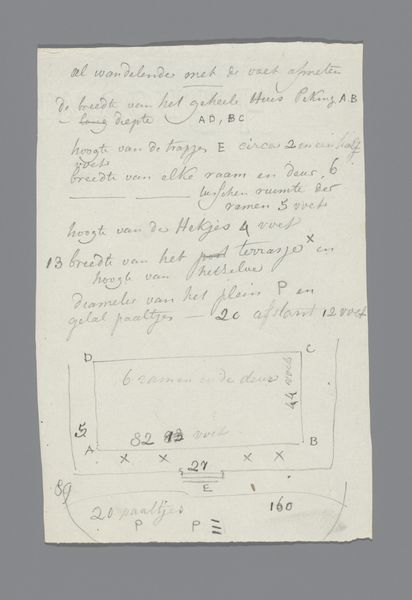 al wandelende met de voet afmeten
de breedte van het geheele Huis Peking A.B
— lang diepte AD, BC
hoogte van de trapjes E circa 2 en een half
voet
breedte van elke raam en deur, 6
tusschen ruimte der
ramen 5 voet
hoogte van de Hekjes 4 voet
13 breedte van het terrasje x en
hoogte van hetzelve
diameter van het plein P en
getal paaltjes — 20 afstant 12 voet
D C
6 ramen en de deur
44 voet
5
82 voet
A B
x x 27 x x
E
89
20 paaltjes 160
P P